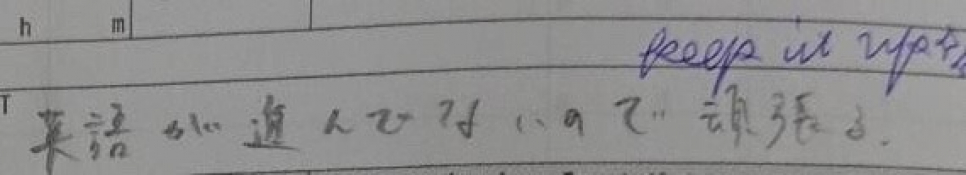 h m
keep it up
T
英語が進んでないので頑張る.